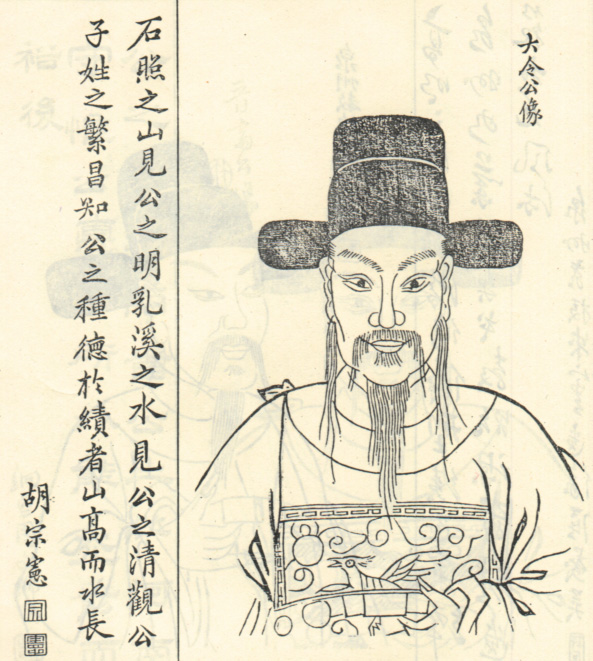 大令公像
石照之山見公之明乳溪之水見公之清觀公
子姓之繁昌知公之種德於績者山高而水長
胡宗憲